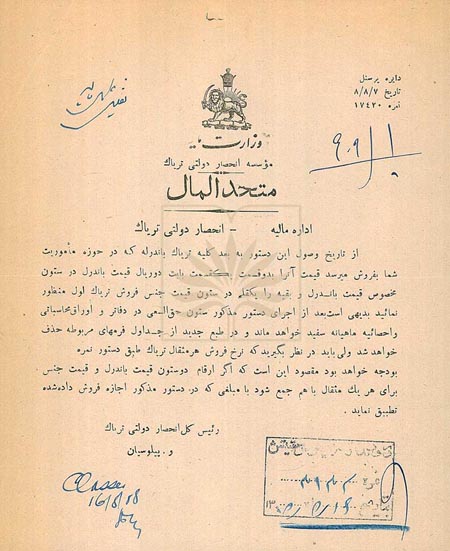 دایره پرسنل
تاریخ ۸/۸/۷
نمره ۱۷۴۲۰
وزارت مالیه
مؤسسه انحصار دولتی تریاک
متحدالمال
اداره مالیه - انحصار دولتی تریاک
از تاریخ وصول این دستور به بعد کلیه تریاک باندرله که در حوزه مأموریت
شما بفروش میرسد قیمت آنرا بدوقسمت یکقسمت بابت دوریال قیمت باندرل در ستون
مخصوص قیمت باندرل و بقیه را یکقلم در ستون قیمت جنس فروش تریاک اول منظور
نمائید بدیهی است بعد از اجرای دستور مذکور ستون حق‌السعی در دفاتر و اوراق محاسباتی
واحصائیه ماهیانه سفید خواهد ماند و در طبع جدید از جداول فرمهای مربوطه حذف
خواهد شد ولی باید در نظر بگیرید که نرخ فروش هر مثقال تریاک طبق دستور نمره
بودجه خواهد بود مقصود این است که اگر ارقام دوستون قیمت باندرل و قیمت جنس
برای هر یک مثقال با هم جمع شود با مبلغی که در دستور مذکور اجازه فروش داده‌شده
تطبیق نماید .
رئیس کل انحصار دولتی تریاک
و . پیلوسیان